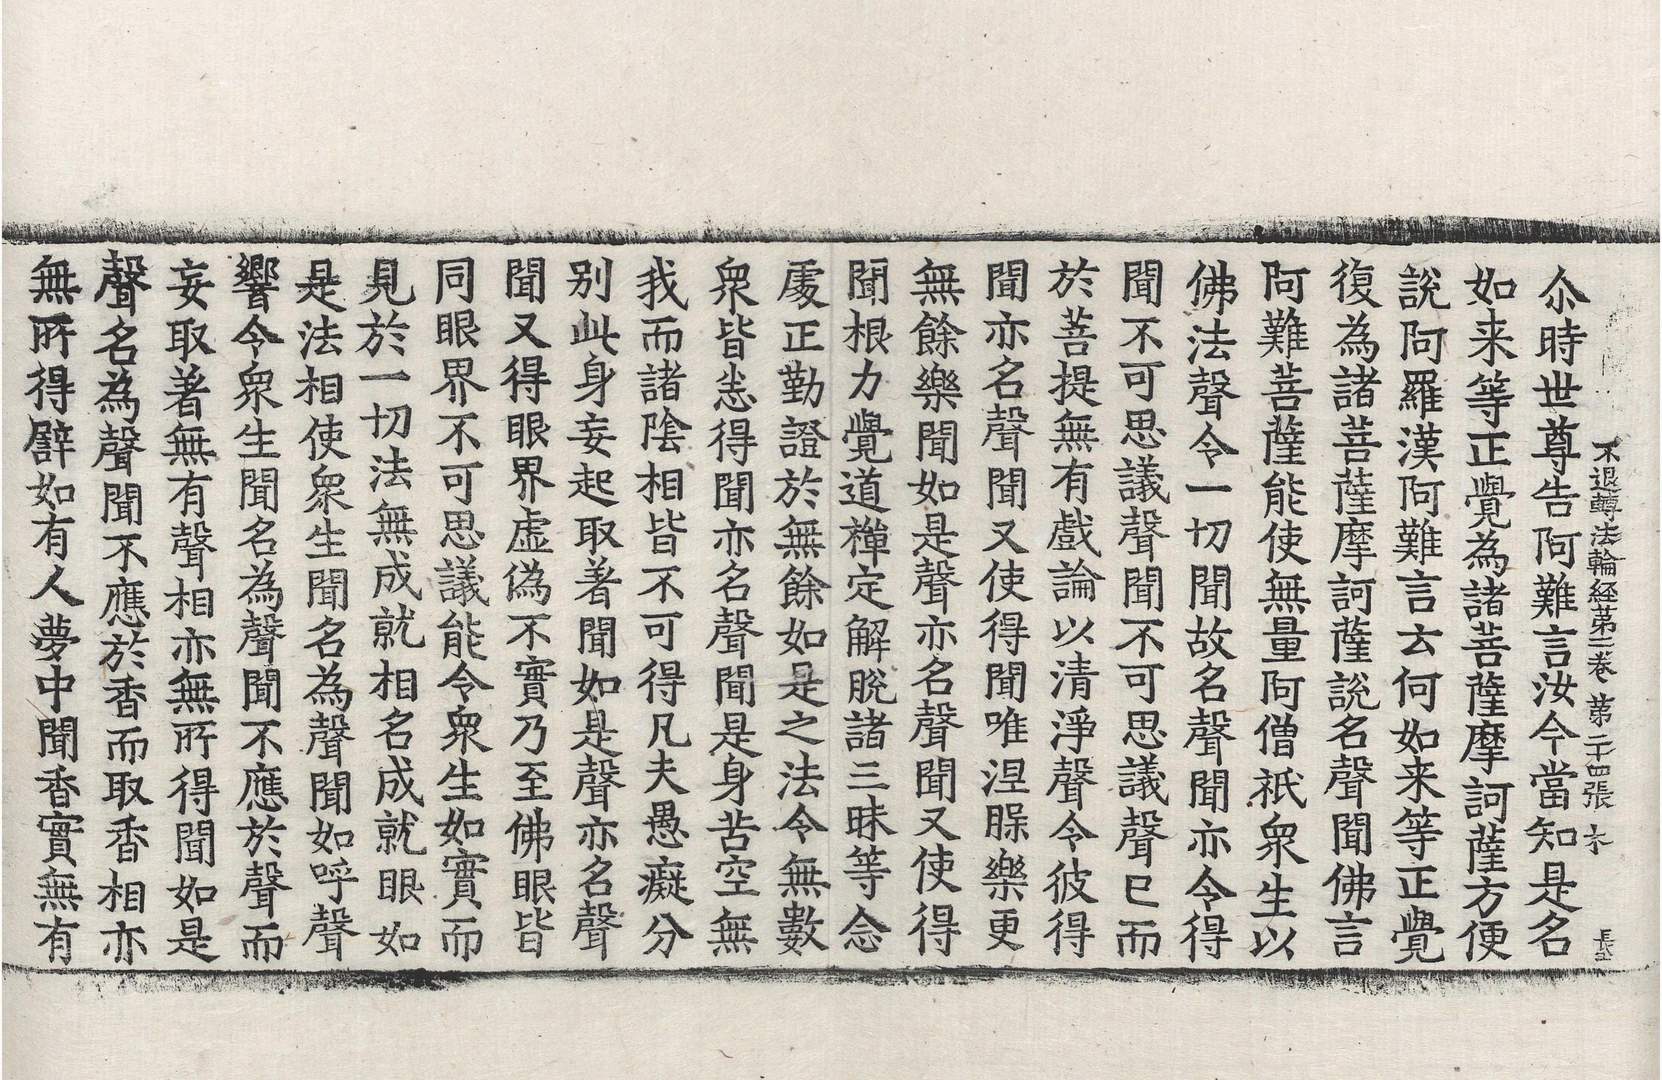 不退轉法輪経第二卷 第二十四張 木
尒時世尊告阿難言汝今當知是名
如来等正覺為諸菩薩摩訶薩方便
說阿羅漢阿難言云何如来等正覺
復為諸菩薩摩訶薩說名聲聞佛言
阿難菩薩能使無量阿僧祇衆生以
佛法聲令一切聞故名聲聞亦令得
聞不可思議聲聞不可思議聲已而
於菩提無有戲論以清淨聲令彼得
聞亦名聲聞又使得聞唯涅槃樂更
無餘樂聞如是聲亦名聲聞又使得
聞根力覺道禪定解脫諸三昧等念
處正勤證於無餘如是之法令無數
衆皆悉得聞亦名聲聞是身苦空無
我而諸陰相皆不可得凡夫愚癡分
别此身妄起取著聞如是聲亦名聲
聞又得眼界虛偽不實乃至佛眼皆
同眼界不可思議能令衆生如實而
見於一切法無成就相名成就眼如
是法相使衆生聞名為聲聞如呼聲
響令衆生聞名為聲聞不應於聲而
妄取著無有聲相亦無所得聞如是
聲名為聲聞不應於香而取香相亦
無所得譬如有人夢中聞香實無有